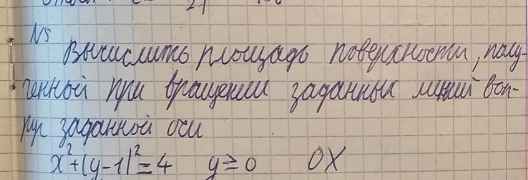 N5
Вычислить площадь поверхности, полу-
ченной при вращении заданных линий вок-
руг заданной оси
x²+(y-1)²=4 y≥0 OX